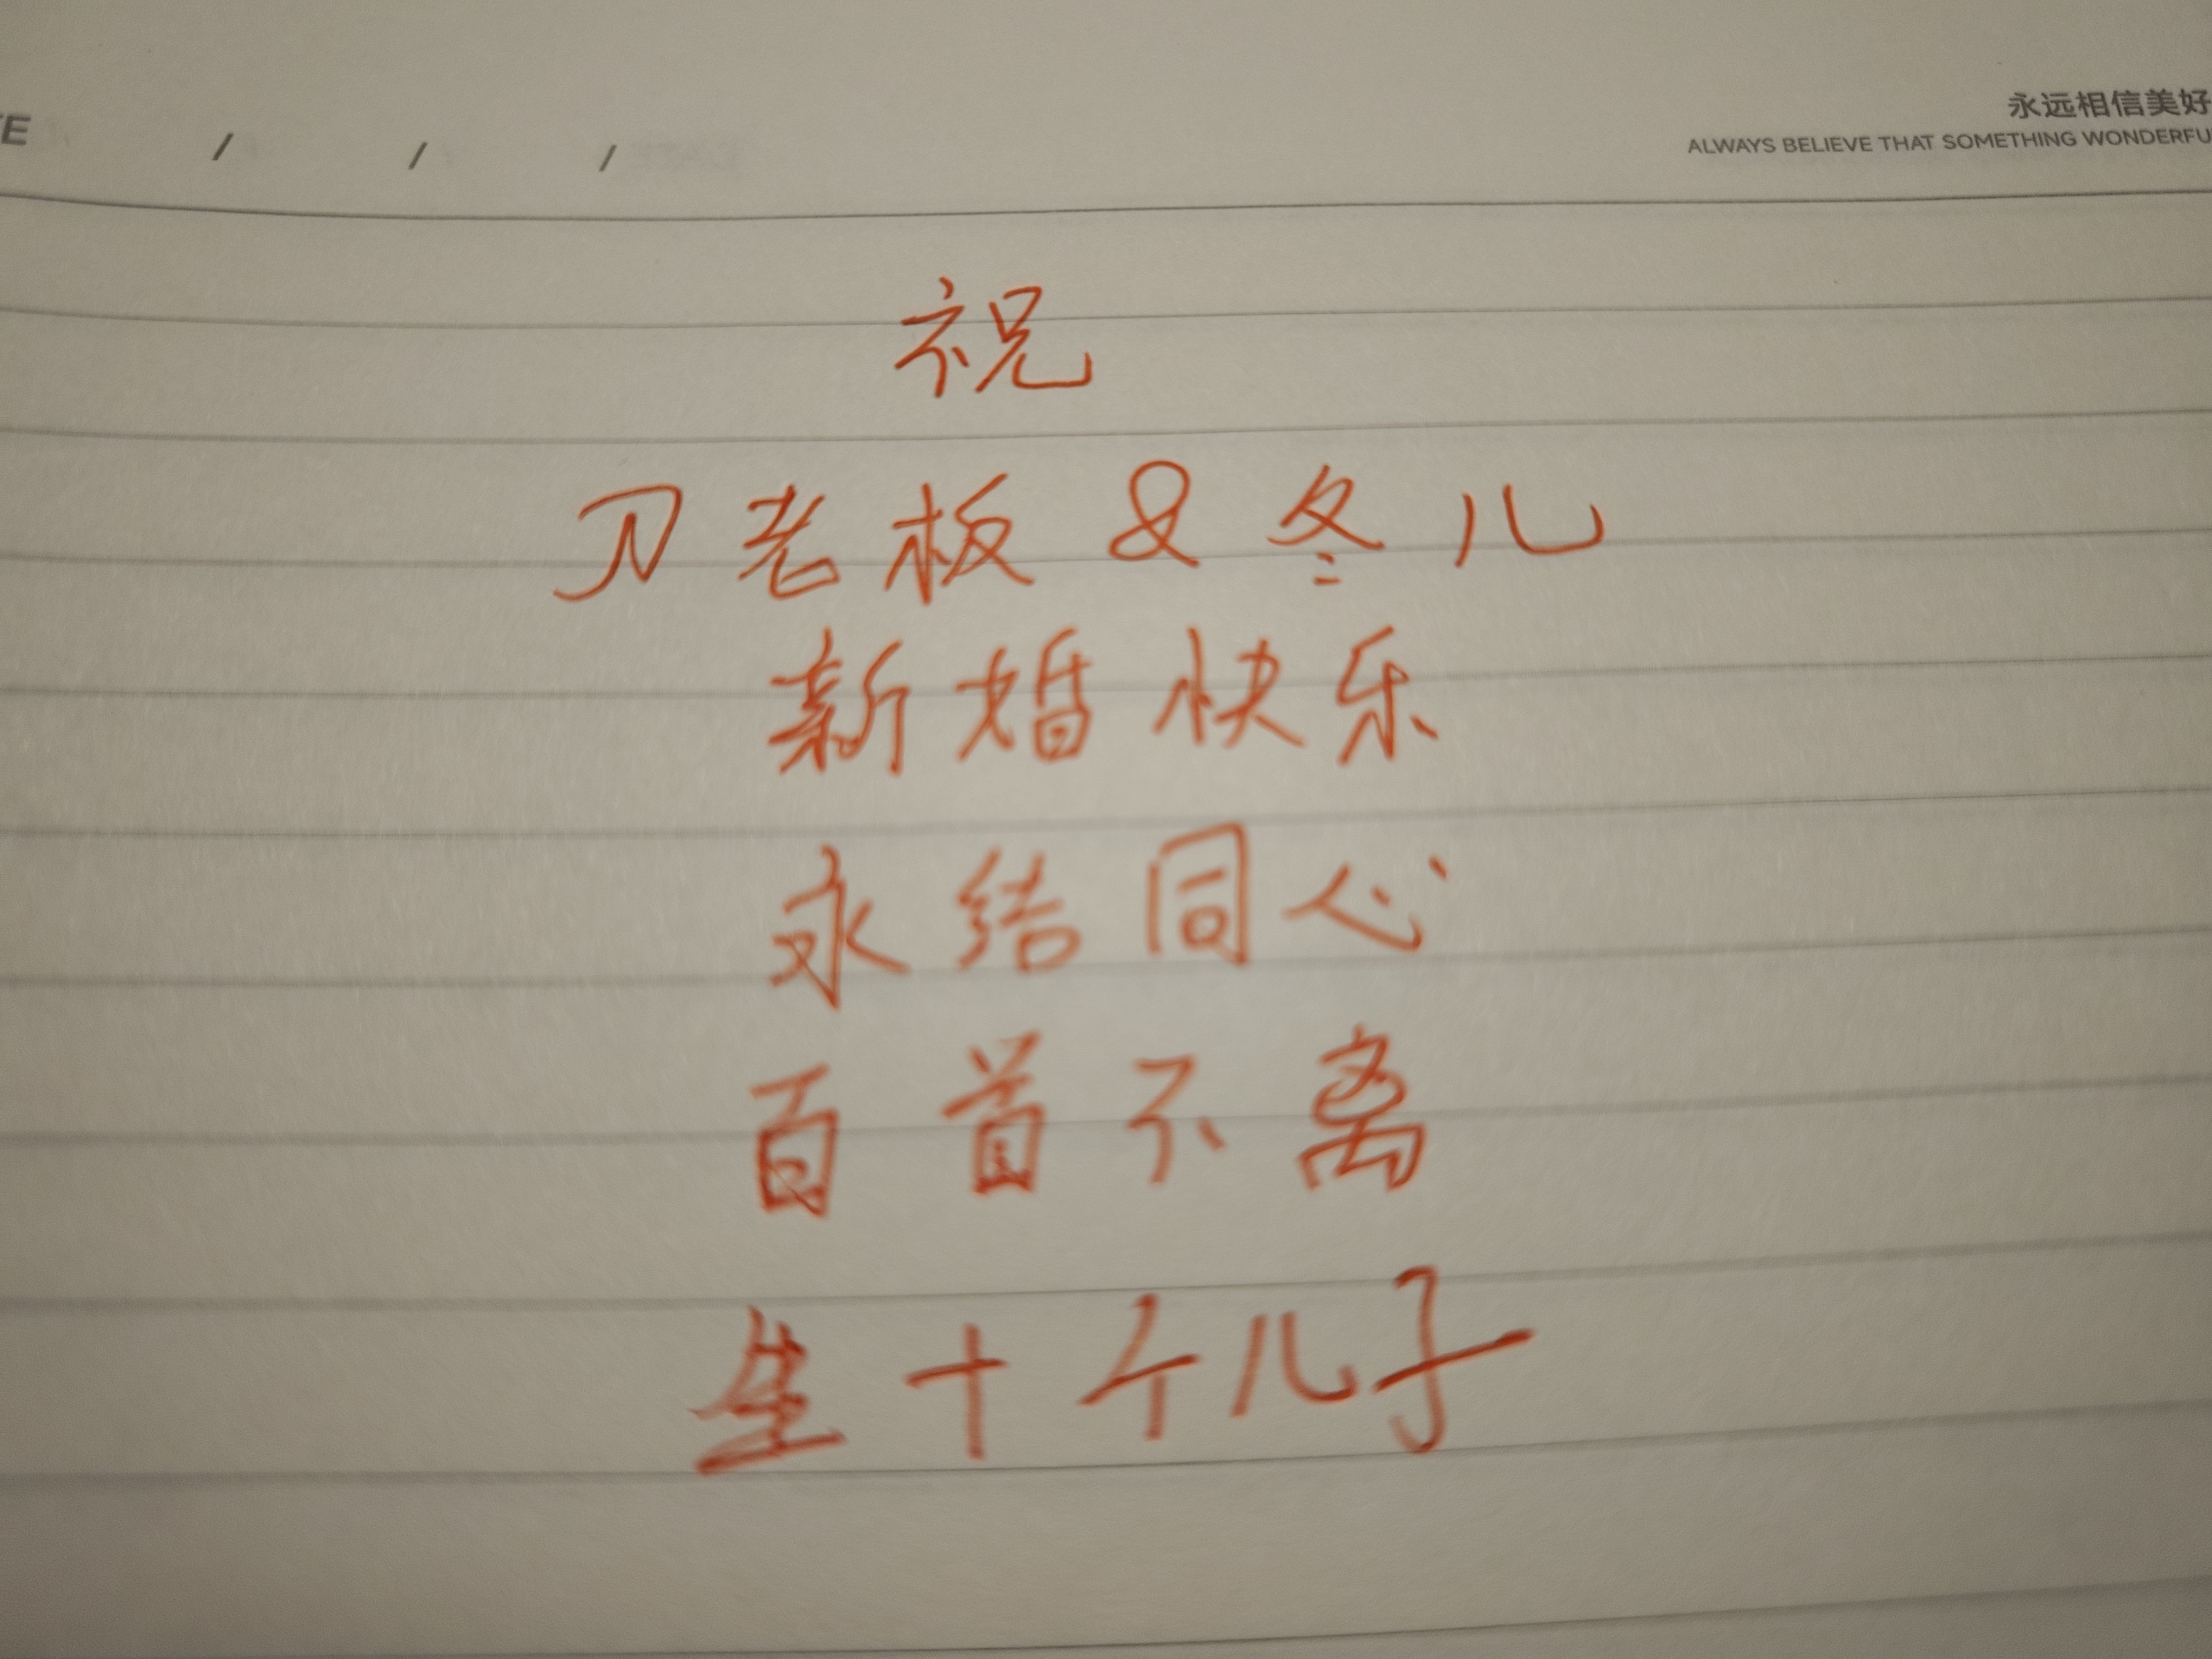 永远相信美好
ALWAYS BELIEVE THAT SOMETHING WONDERFU
/ / /
祝
刀老板 & 冬儿
新婚快乐
永结同心
百首不离
生十个儿子